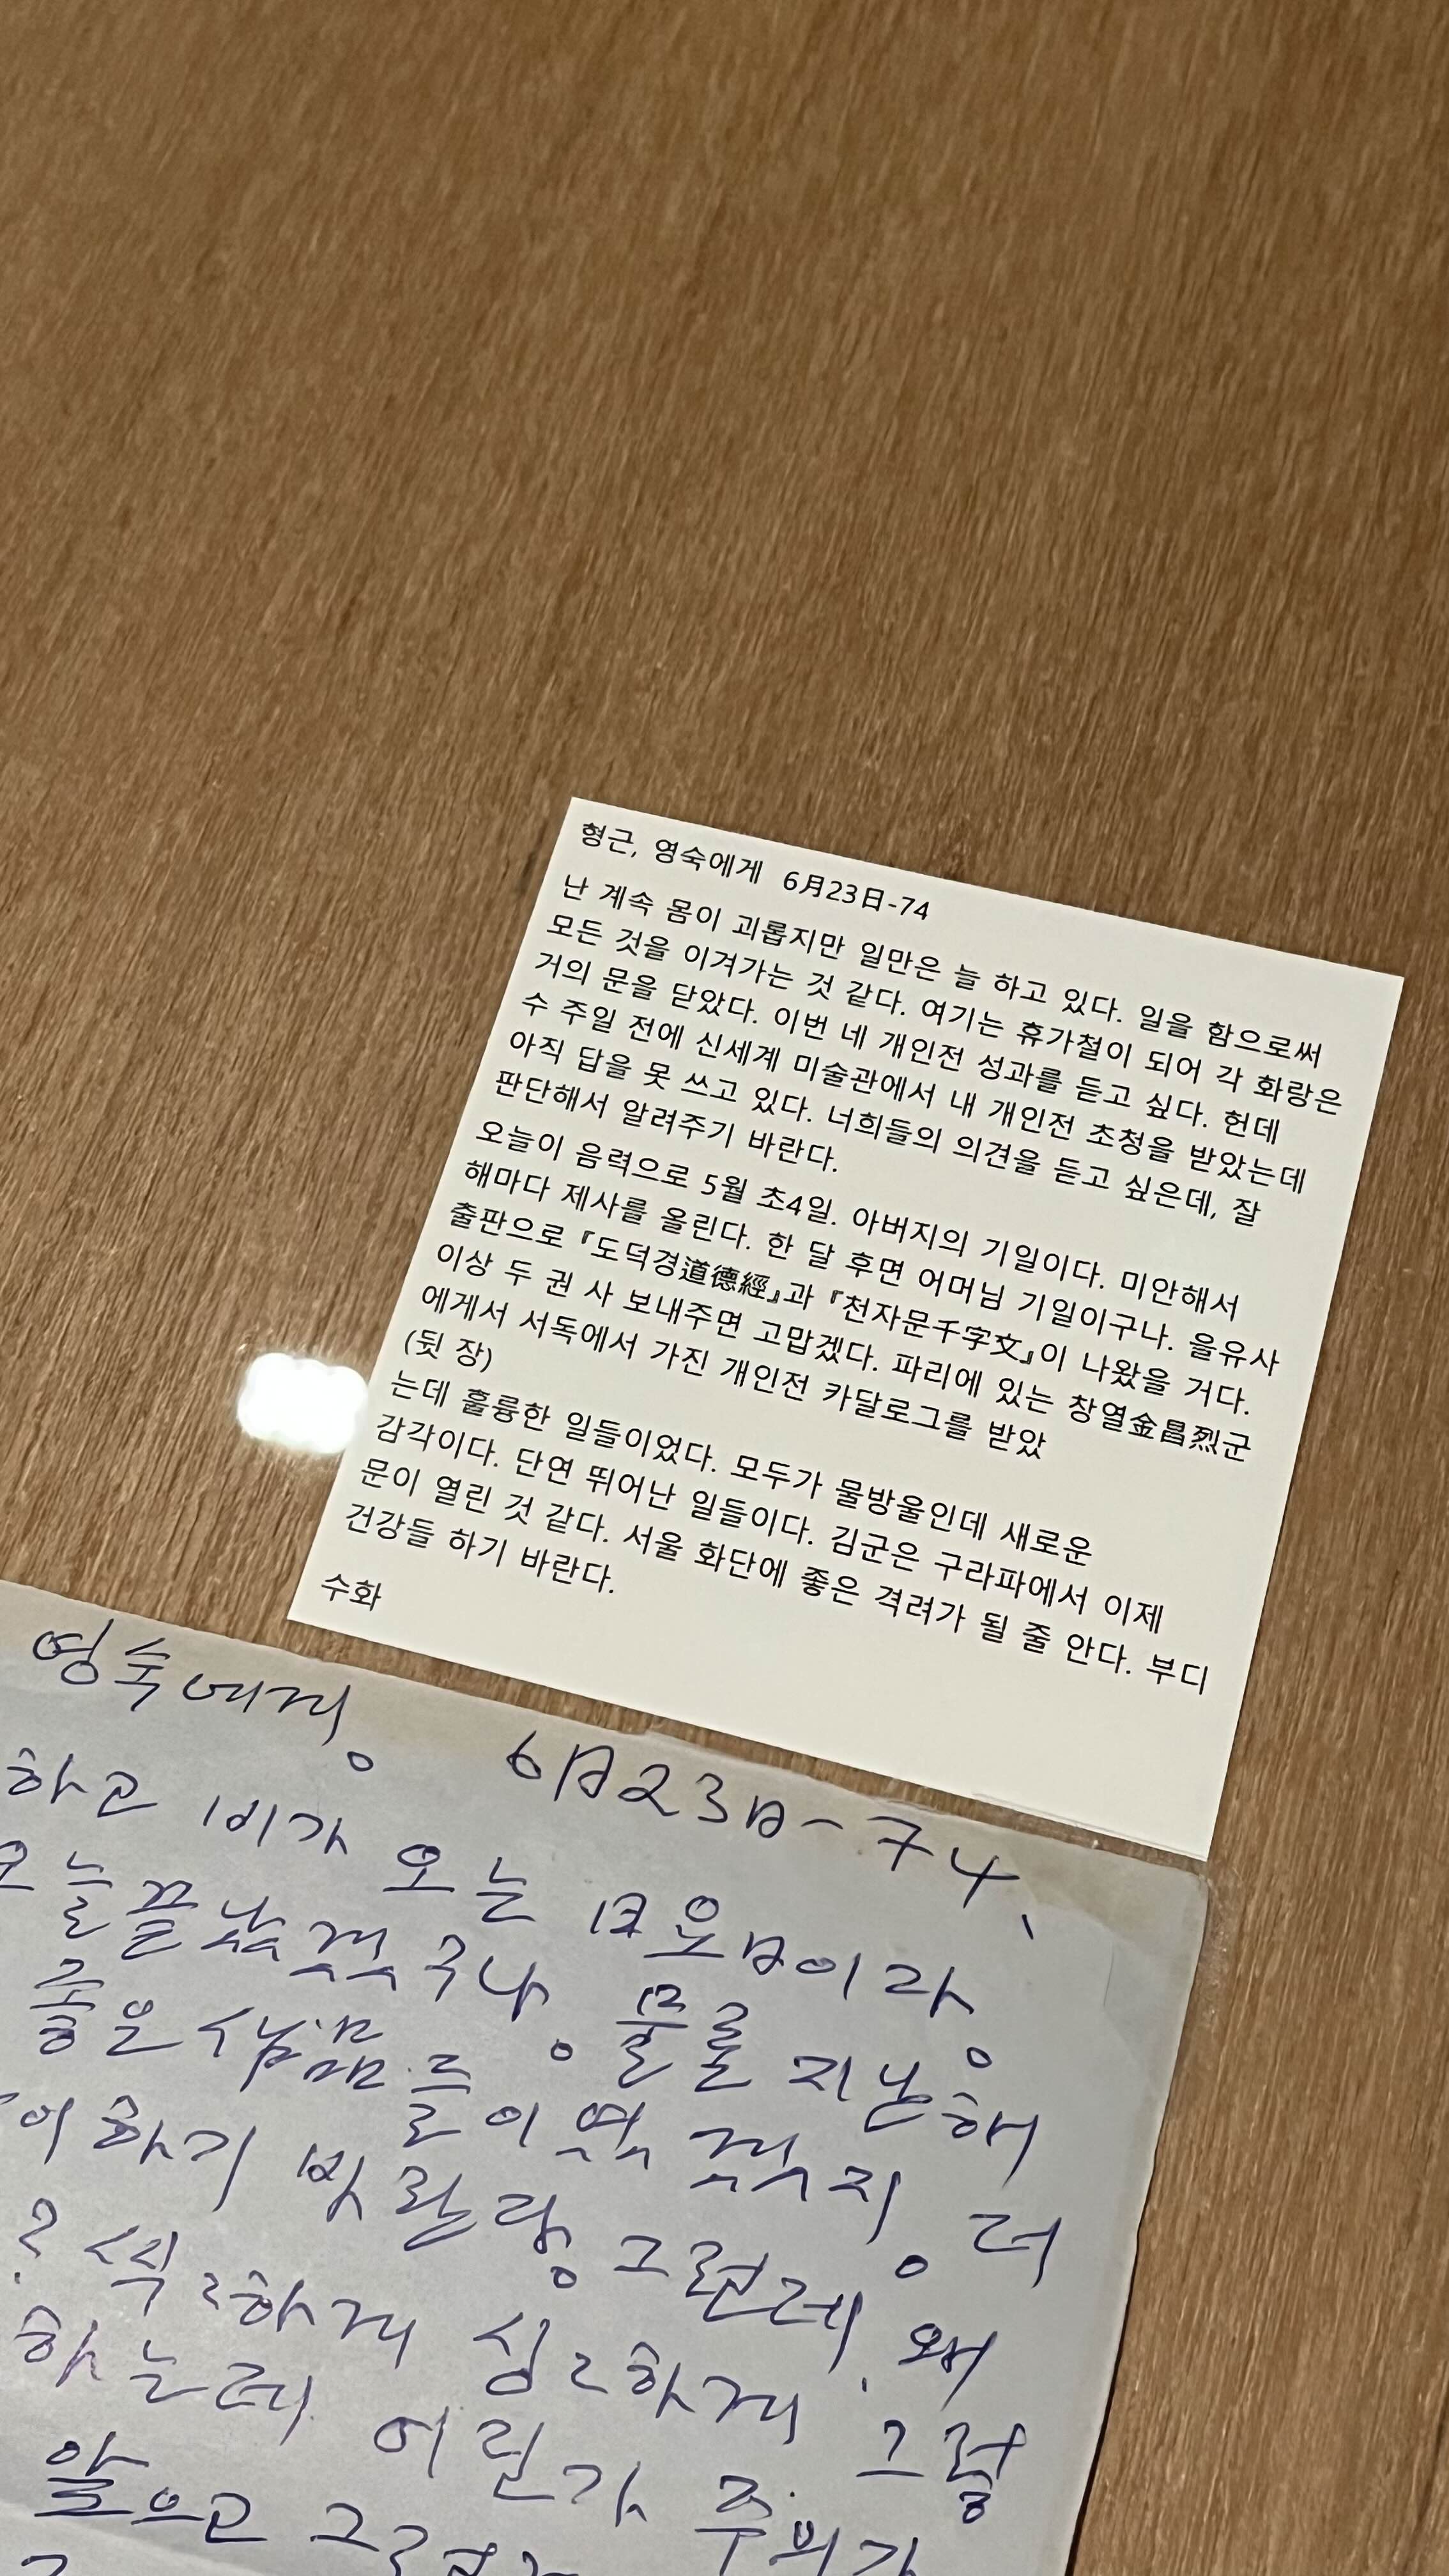 형근, 영숙에게 6月23日-74
난 계속 몸이 괴롭지만 일만은 늘 하고 있다. 일을 함으로써
모든 것을 이겨가는 것 같다. 여기는 휴가철이 되어 각 화랑은
거의 문을 닫았다. 이번 네 개인전 성과를 듣고 싶다. 헌데
수 주일 전에 신세계 미술관에서 내 개인전 초청을 받았는데
아직 답을 못 쓰고 있다. 너희들의 의견을 듣고 싶은데, 잘
판단해서 알려주기 바란다.
오늘이 음력으로 5월 초4일. 아버지의 기일이다. 미안해서
해마다 제사를 올린다. 한 달 후면 어머님 기일이구나. 을유사
출판으로 『도덕경道德經』과 『천자문千字文』이 나왔을 거다.
이상 두 권 사 보내주면 고맙겠다. 파리에 있는 창열金昌烈군
에게서 서독에서 가진 개인전 카달로그를 받았
(뒷 장)
는데 훌륭한 일들이었다. 모두가 물방울인데 새로운
감각이다. 단연 뛰어난 일들이다. 김군은 구라파에서 이제
문이 열린 것 같다. 서울 화단에 좋은 격려가 될 줄 안다. 부디
건강들 하기 바란다.
수화
영숙에게. 6月23日-74.
하고 비가 오는 日요日이라.
오늘 끝났겠구나. 물론 지난해
좋은 作品들이였겠지. 더
하기 바란다. 그런데 왜
하게 심심하게 그럴
하는데 어린가 주위가